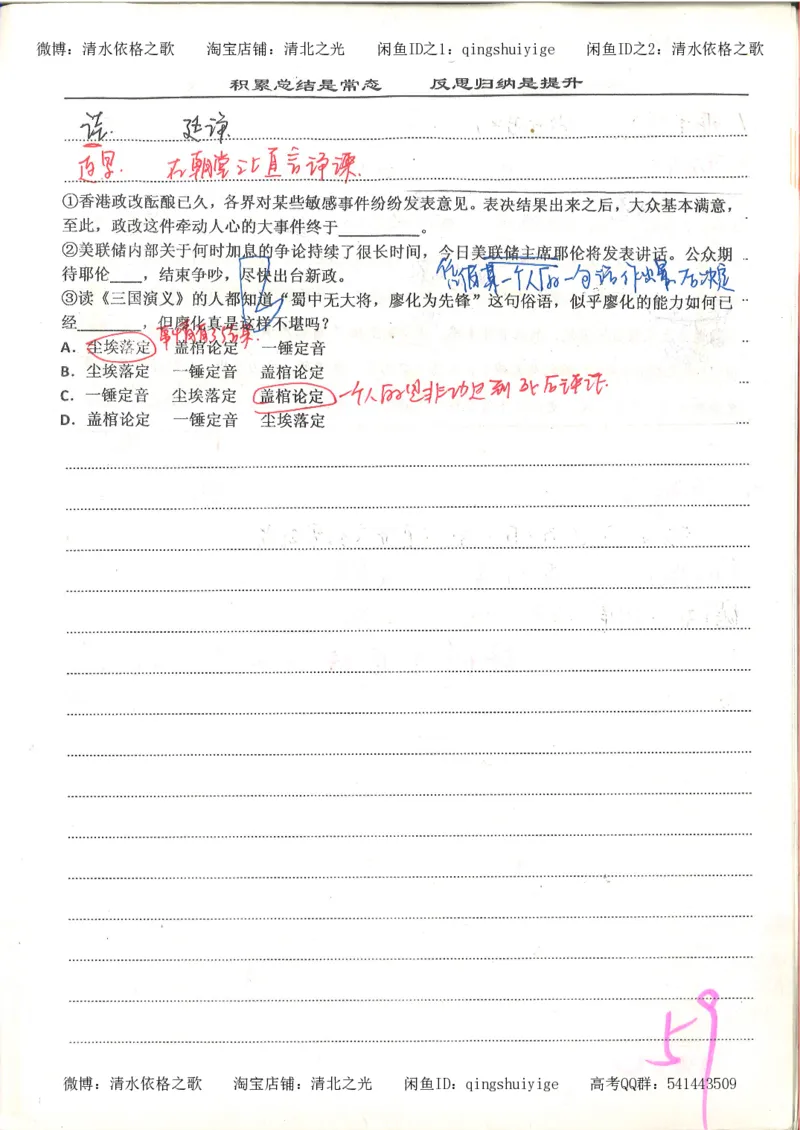 微博：清水依格之歌 淘宝店铺：清北之光 闲鱼ID之1：qingshuiyige 闲鱼ID之2：清水依格之歌
积累总结是常态 反思归纳是提升
诖 廷谏
在朝堂之上直言谏
①香港政改酝酿已久，各界对某些敏感事件纷纷发表意见。表决结果出来之后，大众基本满意，
至此，政改这件牵动人心的大事件终于__________。
②美联储内部关于何时加息的争论持续了很长时间，今日美联储主席耶伦将发表讲话。公众期
待耶伦____，结束争吵，尽快出台新政。
依据某一个人的一句话作出最后决定
③读《三国演义》的人都知道“蜀中无大将，廖化为先锋”这句俗语，似乎廖化的能力如何已
经________，但廖化真是这样不堪吗？
事情有了结果.
A．尘埃落定 盖棺论定 一锤定音
B．尘埃落定 一锤定音 盖棺论定
C．一锤定音 尘埃落定 盖棺论定
一个人的是非功过到死后评论
D．盖棺论定 一锤定音 尘埃落定
59
微博：清水依格之歌 淘宝店铺：清北之光 闲鱼ID：qingshuiyige 高考QQ群：541443509